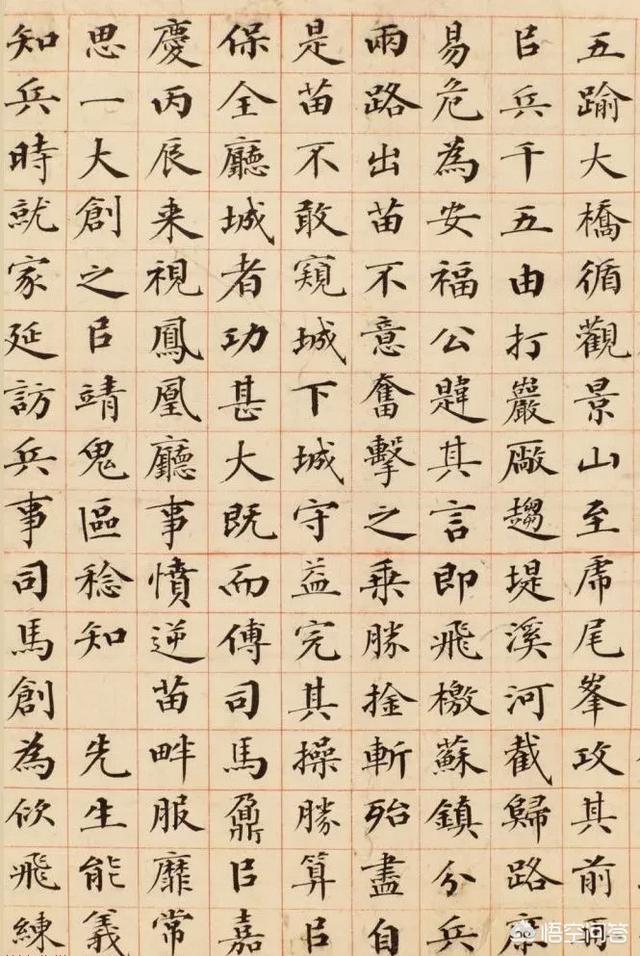 五踰大橋循觀景山至虎尾峯攻其前
㠯兵千五由打巖厰趨堤溪河截歸路
易危為安福公韙其言即飛檄蘇鎮分兵
兩路出苗不意奮擊之乘勝捦斬殆盡自
是苗不敢窺城下城守益完其操勝算㠯
保全廳城者功甚大既而傅司馬鼐㠯嘉
慶丙辰来視鳳凰廳事憤逆苗畔服靡常
思一大創之㠯靖鬼區稔知 先生能義
知兵時就家延訪兵事司馬創為佽飛練
悟空问答